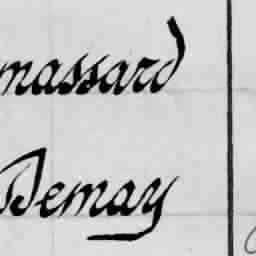 massard
Demay